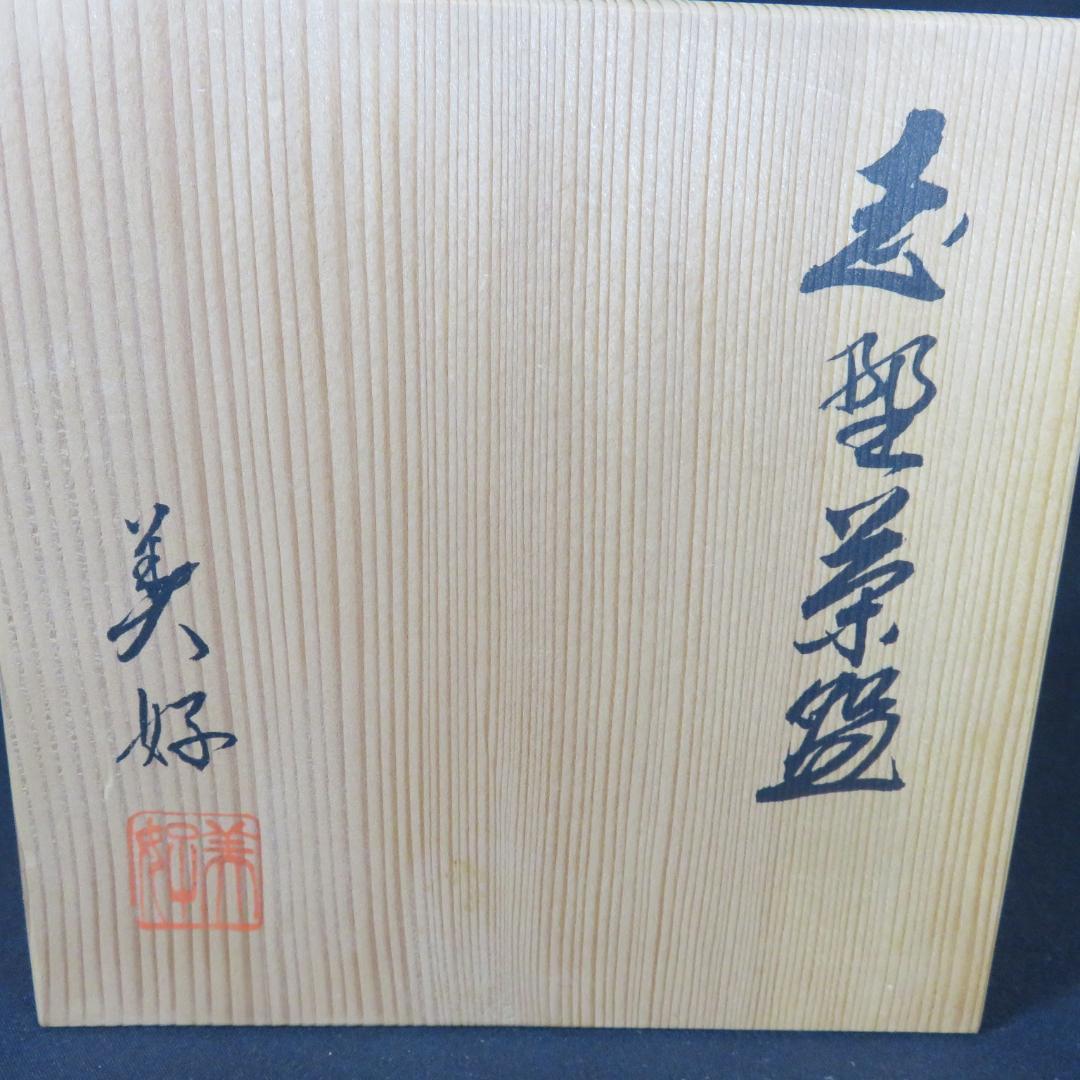 志野茶盌
美好
美好